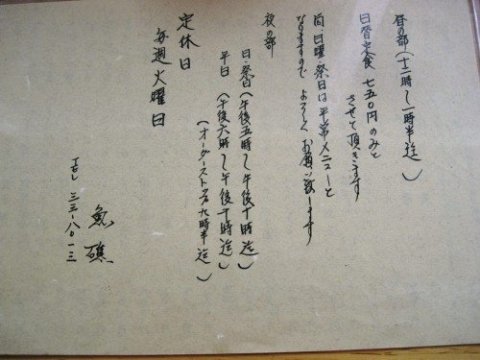 昼の部(十一時~一時半迄)
日替定食 七五〇円のみと
させて頂きます
尚 日曜・祭日は平常メニューと
なりますので よろしくお願い致します
夜の部
日・祭日(午後五時~午後十時迄)
平日(午後六時~午後十時迄)
(オーダーストップ九時半迄)
定休日
毎週火曜日
魚礁
TEL 二三-八〇一三